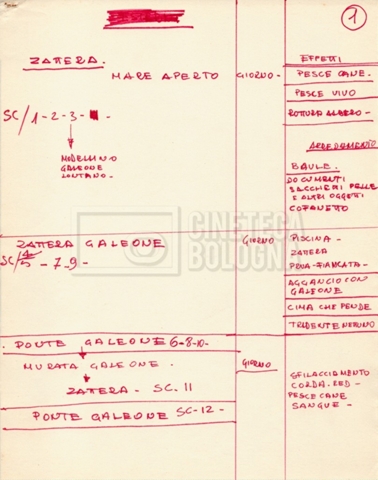 1
ZATTERA.
MARE APERTO
GIORNO -
EFFETTI
PESCE CANE.
PESCE VIVO
ROTTURA ALBERO -
SC/1-2-3-
MODELLINO
GALEONE
LONTANO -
ARREDAMENTO
BAULE.
DOCUMENTI
SACCHETTI PELLE
E ALTRI OGGETTI
COFANETTO
CINETECA
BOLOGNA
ZATTERA GALEONE
GIORNO
SC/4/5 - 7 - 9 -
PISCINA -
ZATTERA
PRUA-FIANCATA -
AGGANCIO CON
GALEONE
CIMA CHE PENDE
TRIDENTE NETTUNO
PONTE GALEONE 6-8-10-
MURATA GALEONE.
GIORNO
ZATTERA - SC. 11
PONTE GALEONE SC-12-
SFILACCIAMENTO
CORDA.
PESCECANE
SANGUE -